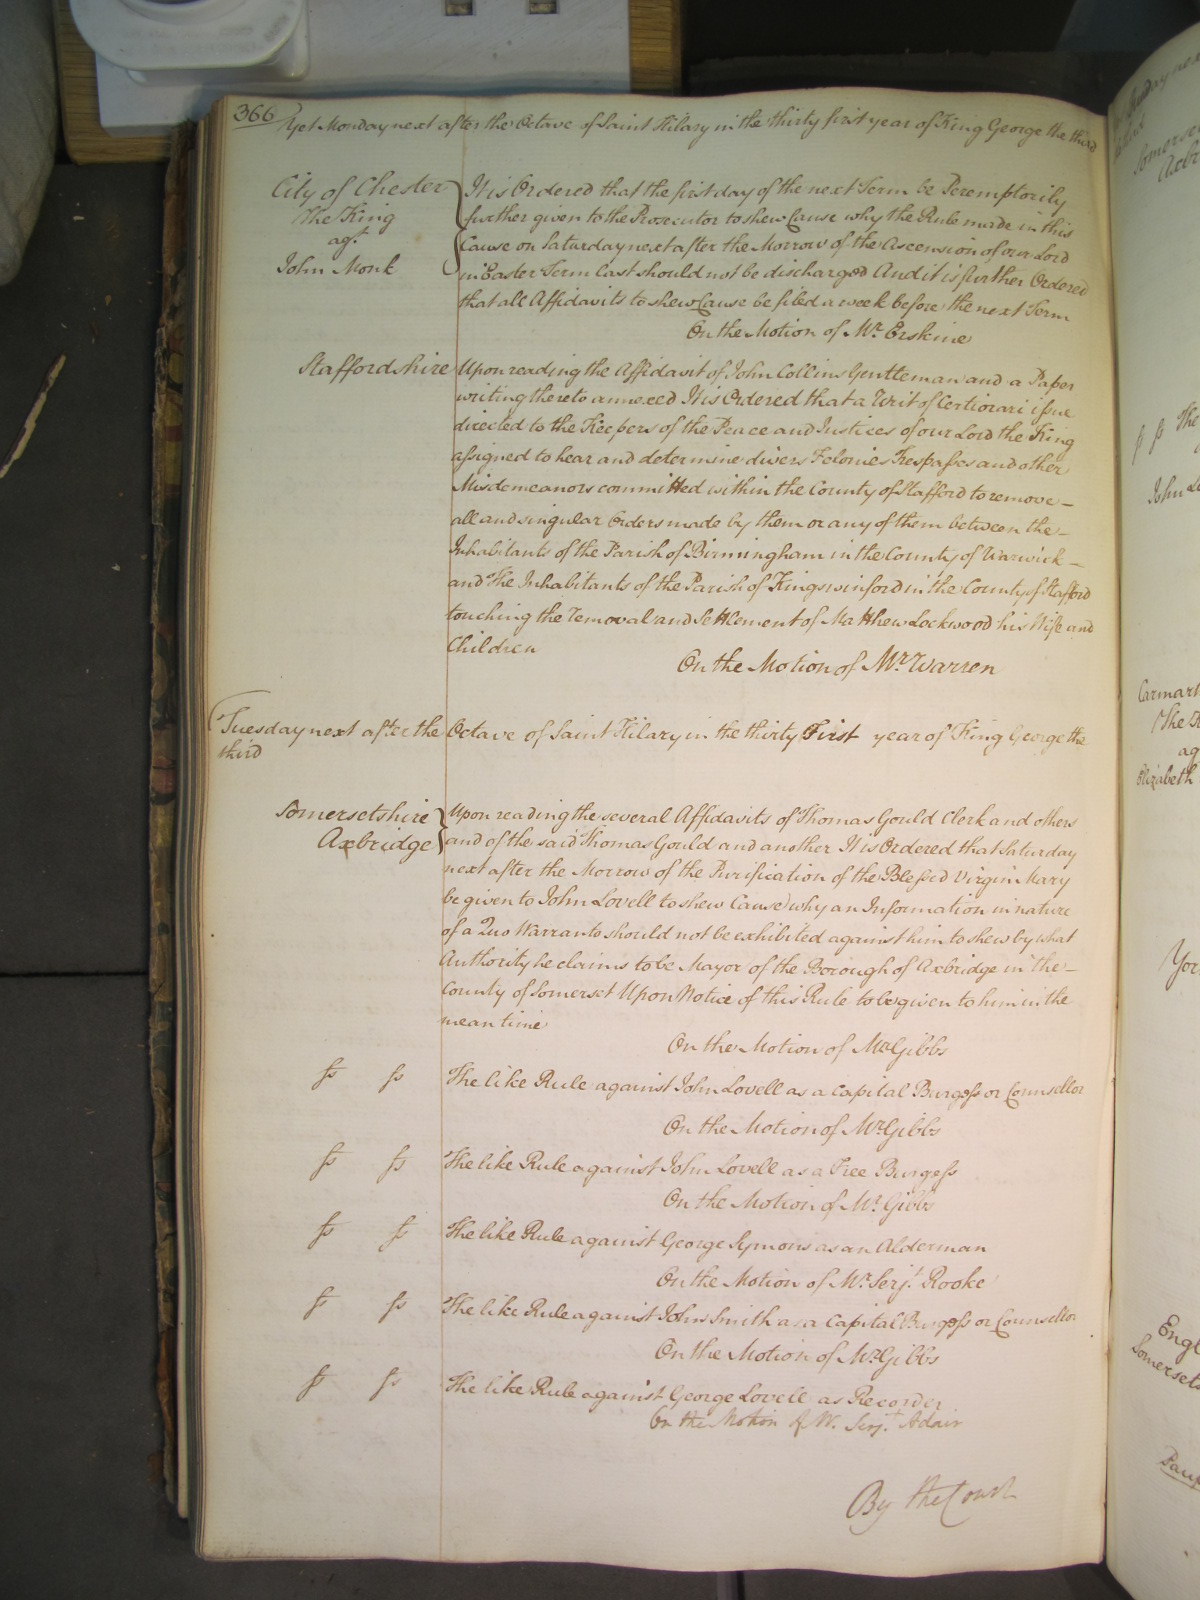 366
Yet Monday next after the Octave of Saint Hilary in the thirty first year of King George the third
City of Chester
The King
agt.
John Monk
It is Ordered that the first day of the next Term be Peremptorily
further given to the Prosecutor to shew Cause why the Rule made in this
Cause on Saturday next after the Morrow of the Ascension of our Lord
in Easter Term last should not be discharged And it is further Ordered
that all Affidavits to shew Cause be filed a week before the next Term
On the Motion of Mr. Erskine
Staffordshire
Upon reading the Affidavit of John Collins Gentleman and a Paper
writing thereto annexed It is Ordered that a Writ of Certiorari issue
directed to the Keepers of the Peace and Justices of our Lord the King
assigned to hear and determine divers Felonies Trespasses and other
Misdemeanors committed within the County of Stafford to remove
all and singular Orders made by them or any of them between the
Inhabitants of the Parish of Birmingham in the County of Warwick
and The Inhabitants of the Parish of Kingswinford in the County of Stafford
touching the Removal and Settlement of Matthew Lockwood his Wife and
Children
On the Motion of Mr. Warren
Tuesday next after the Octave of Saint Hilary in the thirty First year of King George the
third
Somersetshire
Axbridge
Upon reading the several Affidavits of Thomas Gould Clerk and others
and of the said Thomas Gould and another It is Ordered that Saturday
next after the Morrow of the Purification of the Blessed Virgin Mary
be given to John Lovell to shew Cause why an Information in nature
of a Quo Warranto should not be exhibited against him to shew by what
Authority he claims to be Mayor of the Borough of Axbridge in the
County of Somerset Upon Notice of this Rule to be given to him in the
mean time
On the Motion of Mr. Gibbs
ss ss The like Rule against John Lovell as a Capital Burgess or Counsellor
On the Motion of Mr. Gibbs
ss ss The like Rule against John Lovell as a Free Burgess
On the Motion of Mr. Gibbs
ss ss The like Rule against George Symons as an Alderman
On the Motion of Mr. Serjt. Rooke
ss ss The like Rule against John Smith as a Capital Burgess or Counsellor
On the Motion of Mr. Gibbs
ss ss The like Rule against George Lovell as Recorder
On the Motion of Mr. Serjt. Adair
By the Court